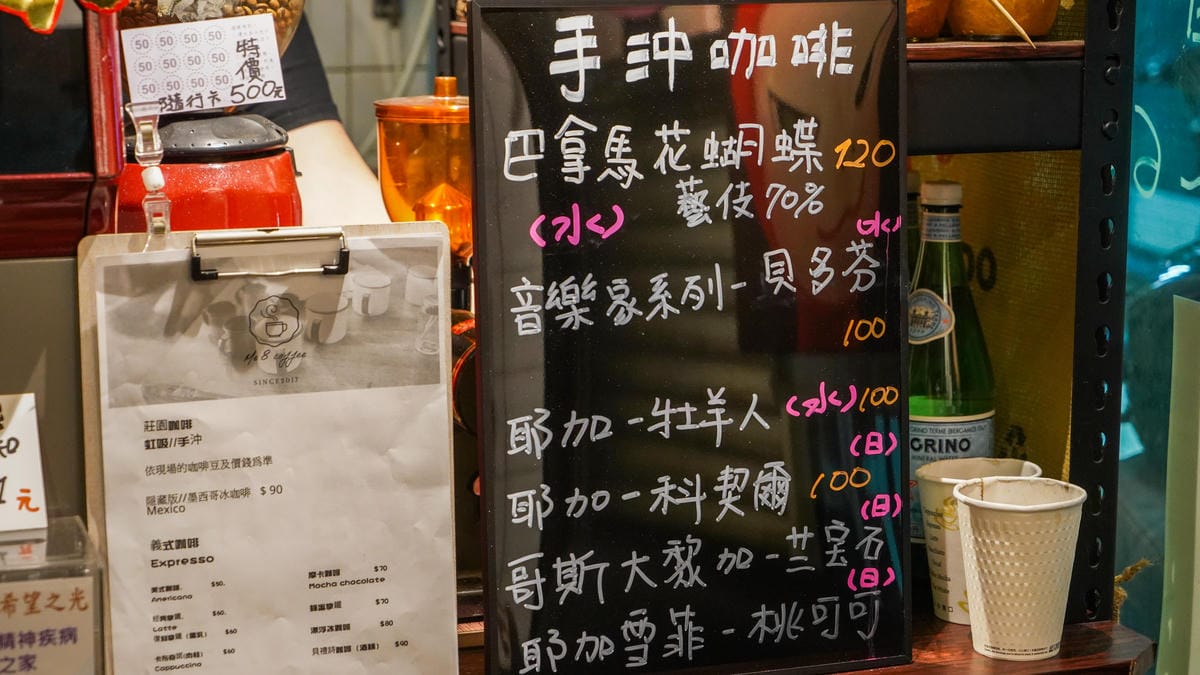 50 50 50 50
50 50 50 50
50 50 50
特價
隨行卡500元
Mr 8 coffee
SINCE2017
莊園咖啡
虹吸//手沖
依現場的咖啡豆及價錢為準
隱藏版//墨西哥冰咖啡 $90
Mexico
義式咖啡
Expresso
美式咖啡. $50.
Americano
經典拿鐵. $60.
Latte
$60
卡布奇諾(肉桂) $60
Cappuccino
摩卡咖啡 $70
Mocha chocolate
蜂蜜拿鐵 $70
漂浮冰咖啡 $80
貝禮詩咖啡(酒精) $90
元
希望之光
精神疾病
之家
手沖咖啡
巴拿馬花蝴蝶 120
藝伎70%
(水く)
水く
音樂家系列-貝多芬
100
耶加-牡羊人 (水く) 100
(日)
耶加-科契爾 100
(日)
哥斯大黎加-芸宝石
(日)
耶加雪菲-桃可可
GRINO